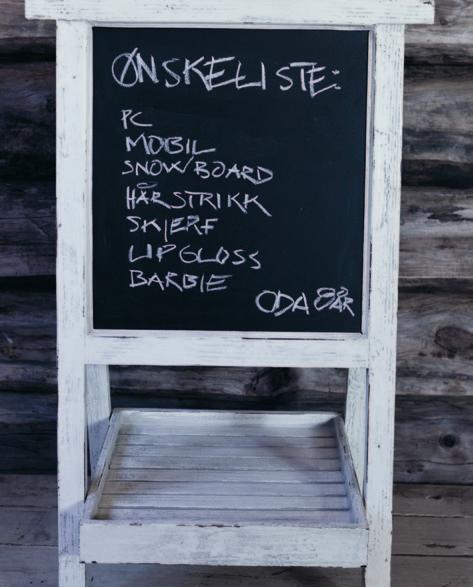 ØNSKELISTE:
PC
MOBIL
SNOWBOARD
HÅRSTRIKK
SKJERF
LIPGLOSS
BARBIE
ODA 8 ÅR